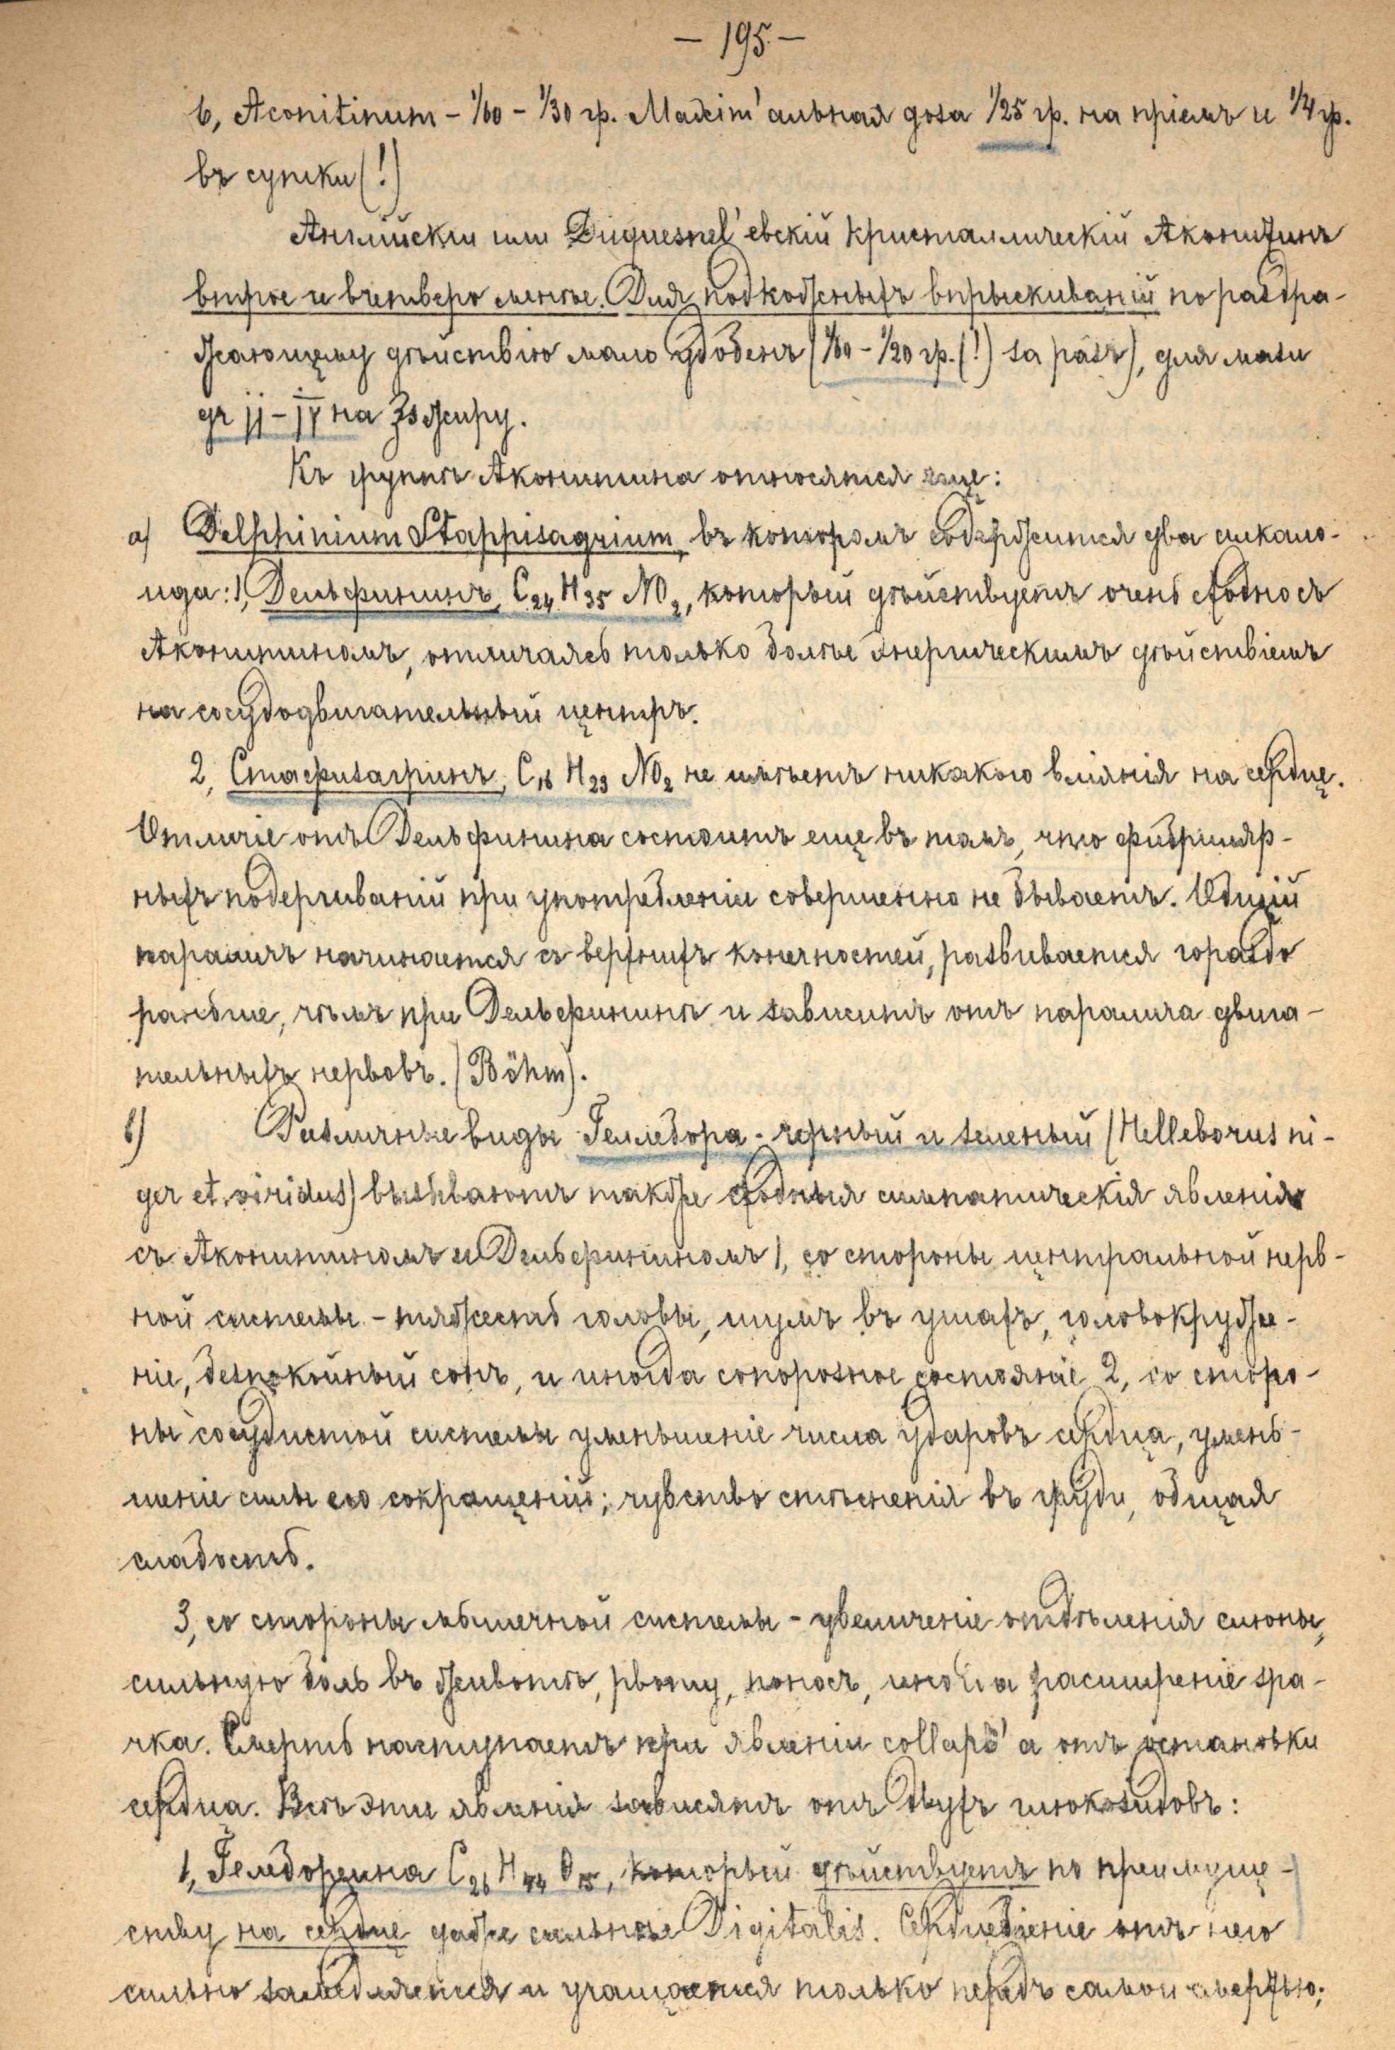 — 195 —
b, Aconitinum – 1/60 – 1/30 гр. Maxim'альная доза 1/25 гр. на пріемъ и 1/4 гр.
въ сутки (!)
Англійскій или Duquesnel'евскій кристаллическій Аконитинъ
втрое и вчетверо менѣе. Для подкожныхъ впрыскиваній по раздра-
жающему дѣйствію мало удобенъ (1/60 – 1/20 гр. (!) за разъ), для мази
gr jj – jV на ʒs жиру.
Къ группѣ Аконитина относятся еще:
a) Delphinium Stapphisagrium, въ которомъ содержится два алкало-
ида: 1, Дельфининъ, C24 H35 NO2, который дѣйствуетъ очень сходно съ
Аконитиномъ, отличаясь только болѣе энергическимъ дѣйствіемъ
на сосудодвигательный центръ.
2, Стафизагринъ, C16 H23 NO2 не имѣетъ никакого вліянія на сердце.
Отличіе отъ Дельфинина состоитъ еще въ томъ, что фибрилляр-
ныхъ подергиваній при употребленіи совершенно не бываетъ. Общій
параличъ начинается съ верхнихъ конечностей, развивается гораздо
раньше, чѣмъ при Дельфининѣ и зависитъ отъ паралича двига-
тельныхъ нервовъ. (Böhm).
b) Различные виды Геллебора – черный и зеленый (Helleborus ni-
ger et viridus) вызываютъ также сходныя симпатическія явленія
съ Аконитиномъ и Дельфининомъ 1, со стороны центральной нерв-
ной системы – тяжесть головы, шумъ въ ушахъ, головокруже-
ніе, безпокойный сонъ, и иногда сопорозное состояніе 2, со сторо-
ны сосудистой системы уменьшеніе числа ударовъ сердца, умень-
шеніе силы его сокращеній; чувство стѣсненія въ груди, общая
слабость.
3, со стороны мышечной системы – увеличеніе отдѣленія слюны,
сильную боль въ животѣ, рвоту, поносъ, иногда расширеніе зра-
чка. Смерть наступаетъ при явленіи collaps'а отъ остановки
сердца. Всѣ эти явленія зависятъ отъ двухъ глюкозидовъ:
1, Гельбореина C26 H44 O15, который дѣйствуетъ по преимуще-
ству на сердце даже сильнѣе Digitalis. Сердцебіеніе отъ него
сильно замедляется и учащается только передъ самой смертью;